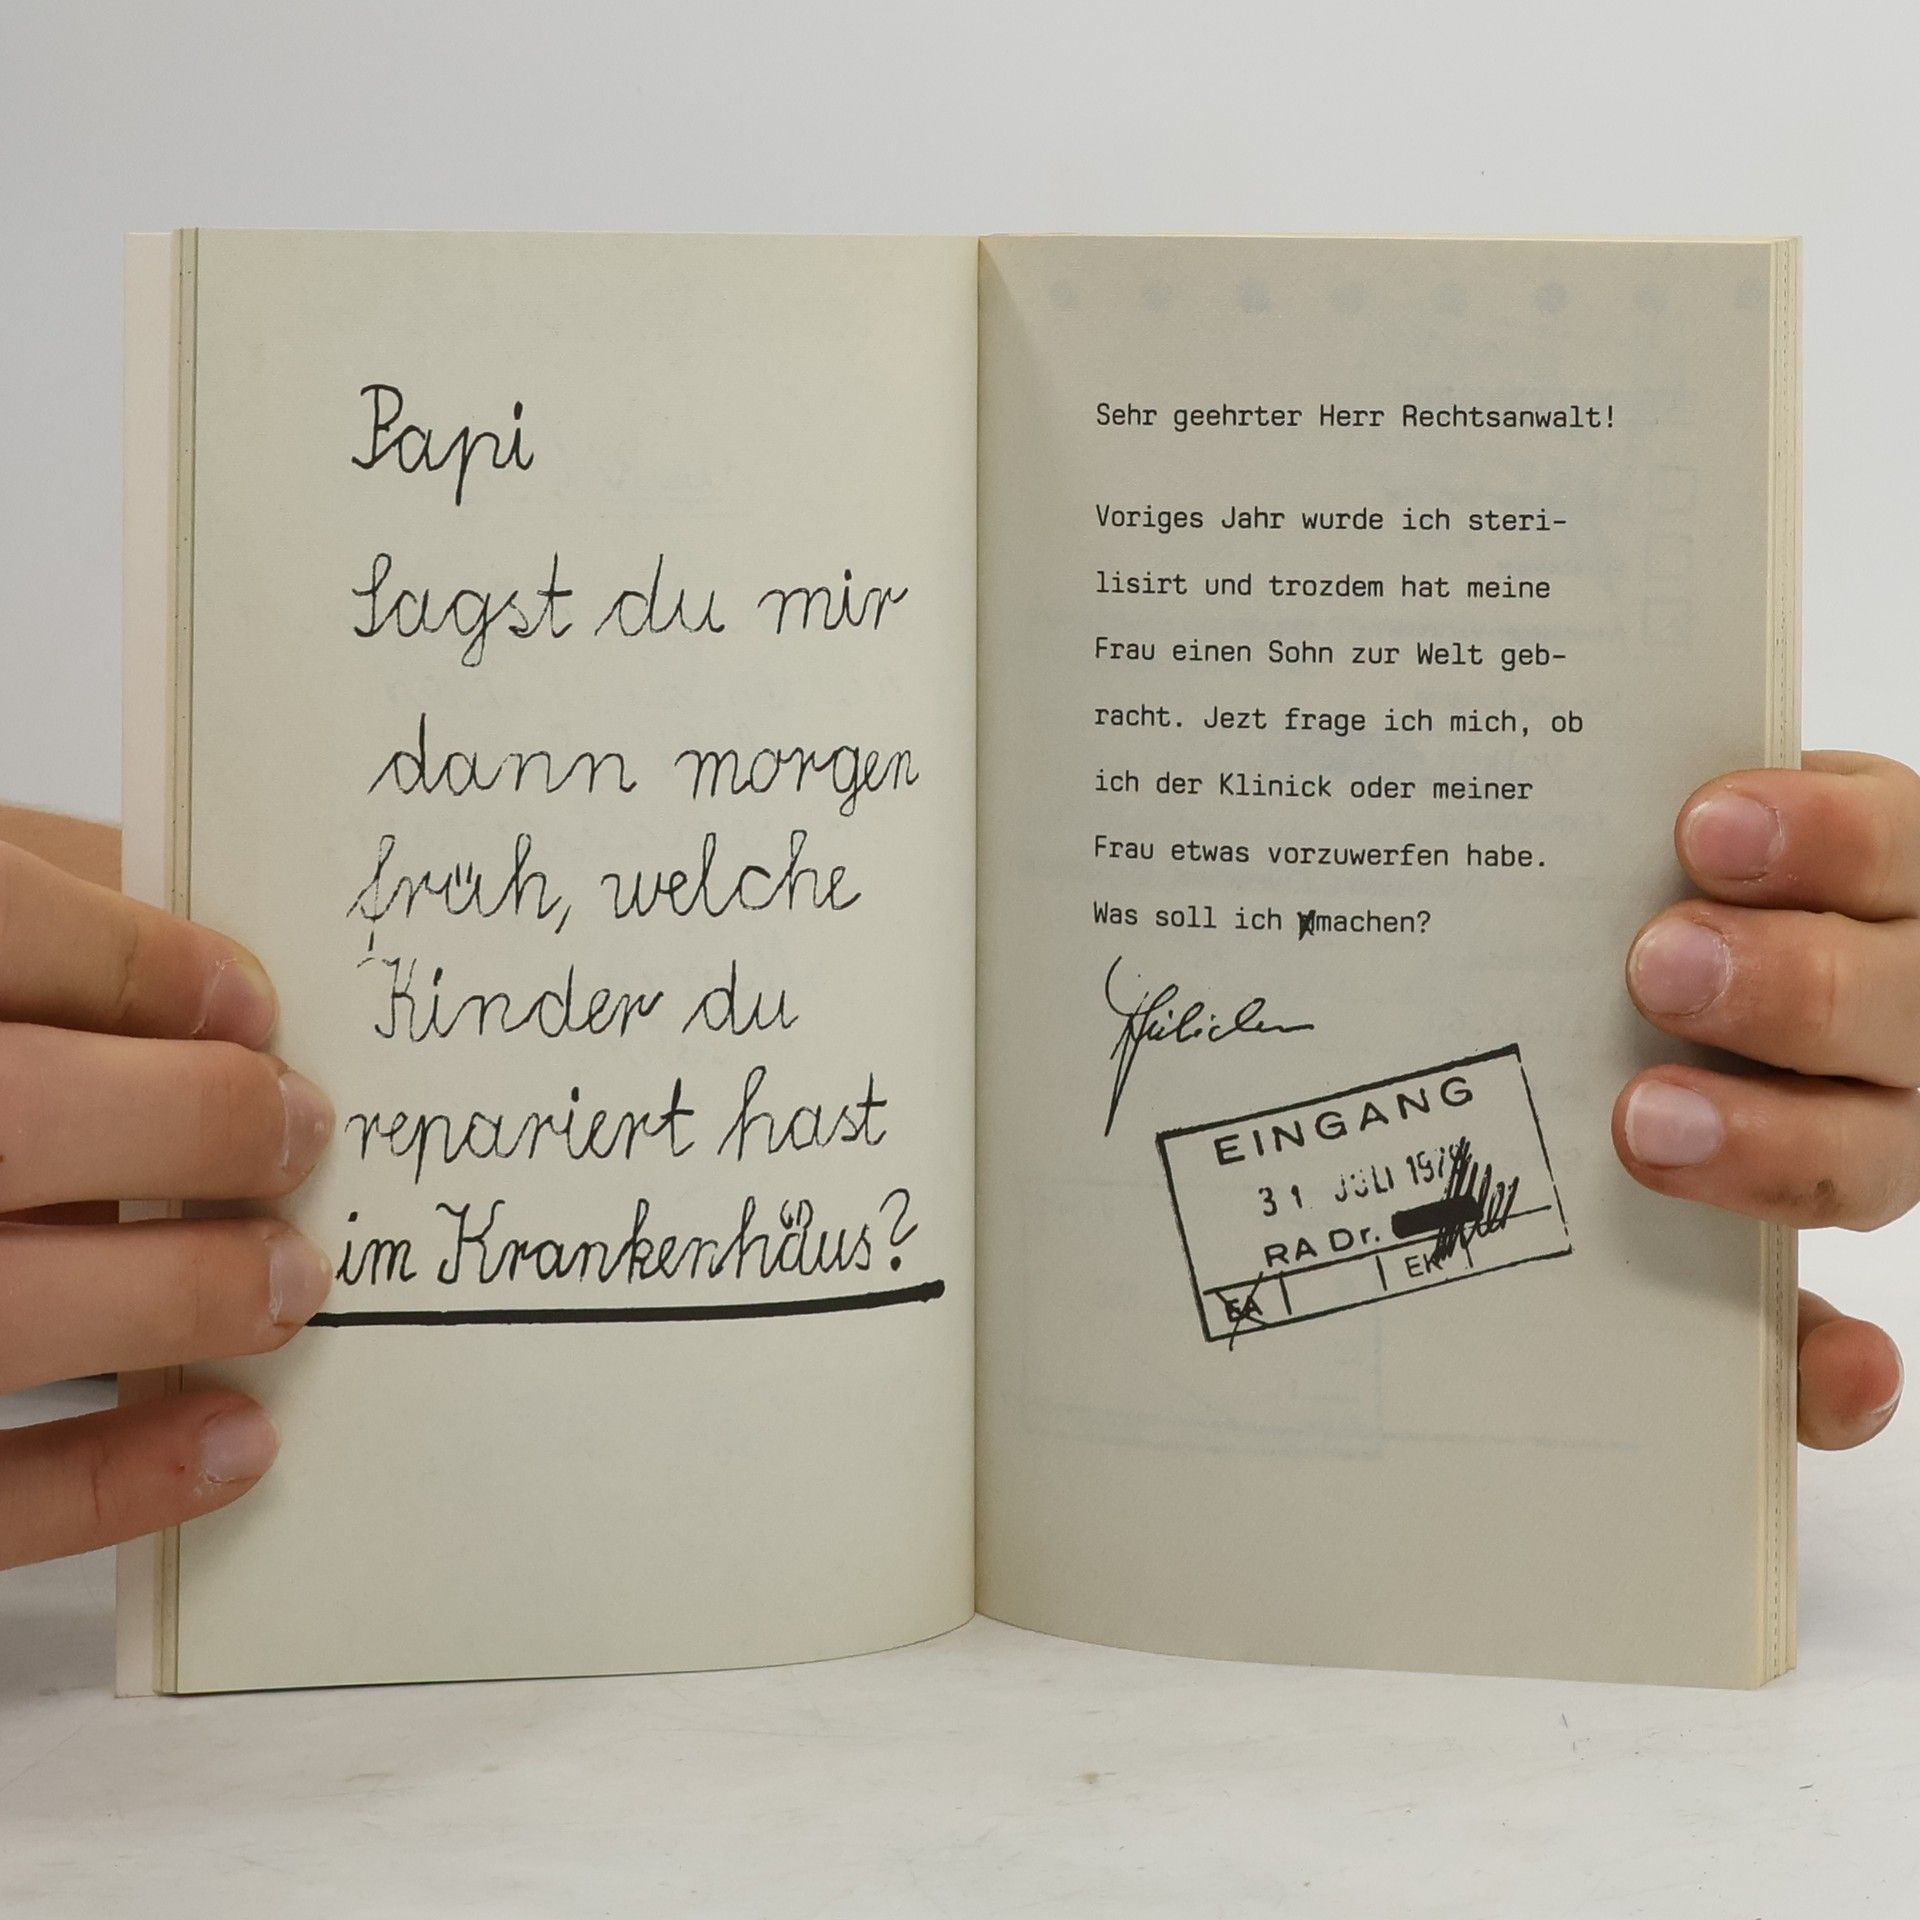 Papi
Sagst du mir
dann morgen
früh, welche
Kinder du
repariert hast
im Krankenhäus?
Sehr geehrter Herr Rechtsanwalt!
Voriges Jahr wurde ich steri-
lisirt und trozdem hat meine
Frau einen Sohn zur Welt geb-
racht. Jezt frage ich mich, ob
ich der Klinick oder meiner
Frau etwas vorzuwerfen habe.
Was soll ich machen?
EINGANG
31. JULI
RA Dr.
EA
EK